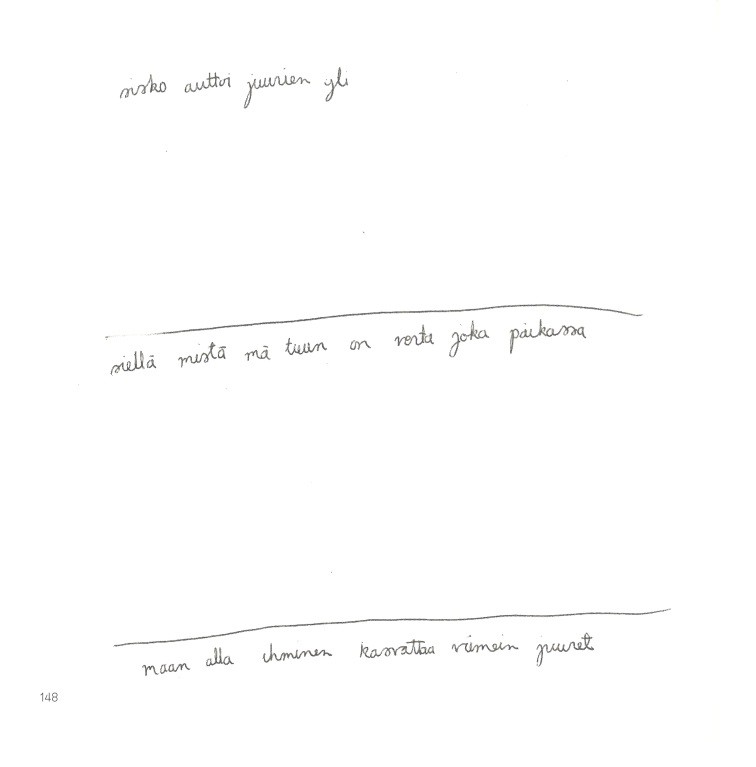 sisko auttoi juurien yli
siellä mistä mä tuun on verta joka paikassa
maan alla ihminen kasvattaa viimein juuret
148